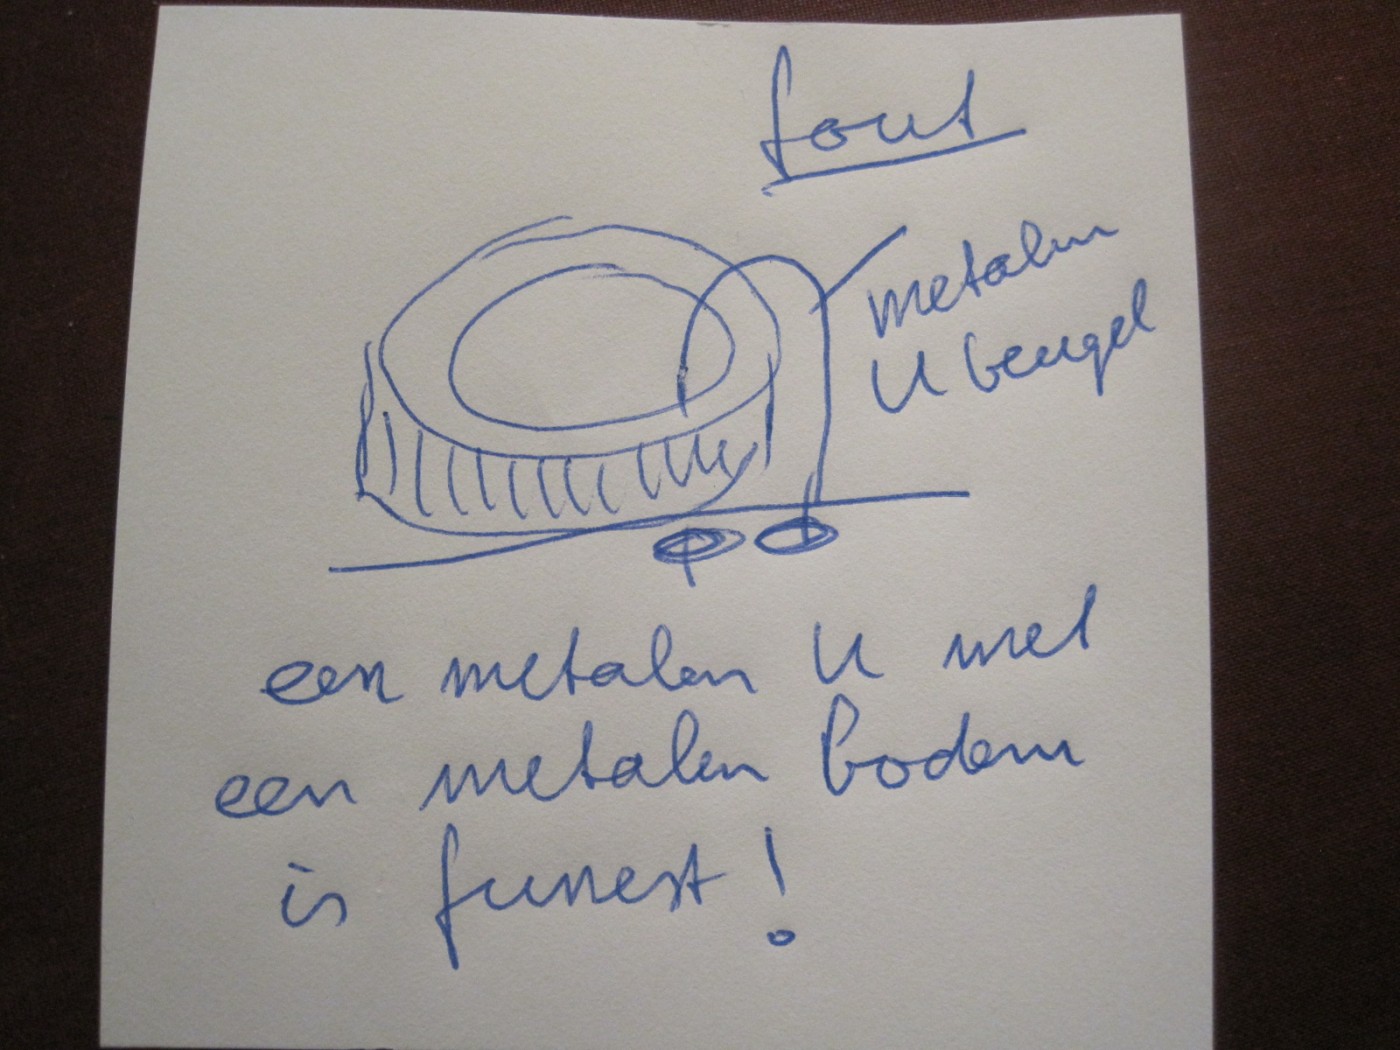 fout
metalen
U beugel
een metalen U met
een metalen bodem
is funest!